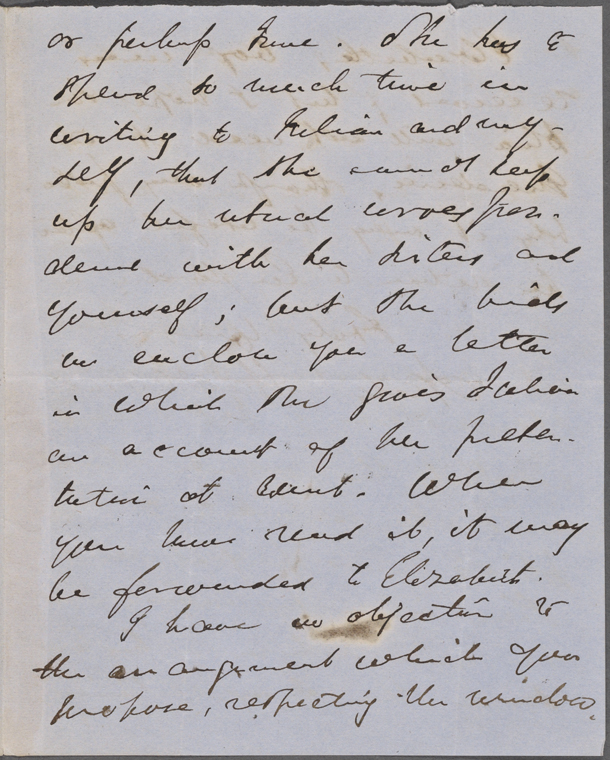 or perhaps June. She has to
spend so much time in
writing to Julian and my-
self, that she cannot keep
up her usual correspon-
dence with her sisters and
yourself; but she bids
me enclose you a letter
in which she gives Julian
an account of her presen-
tation at Court. When
you have read it, it may
be forwarded to Elizabeth.
I have no objection to
the arrangement which you
propose, respecting the window.